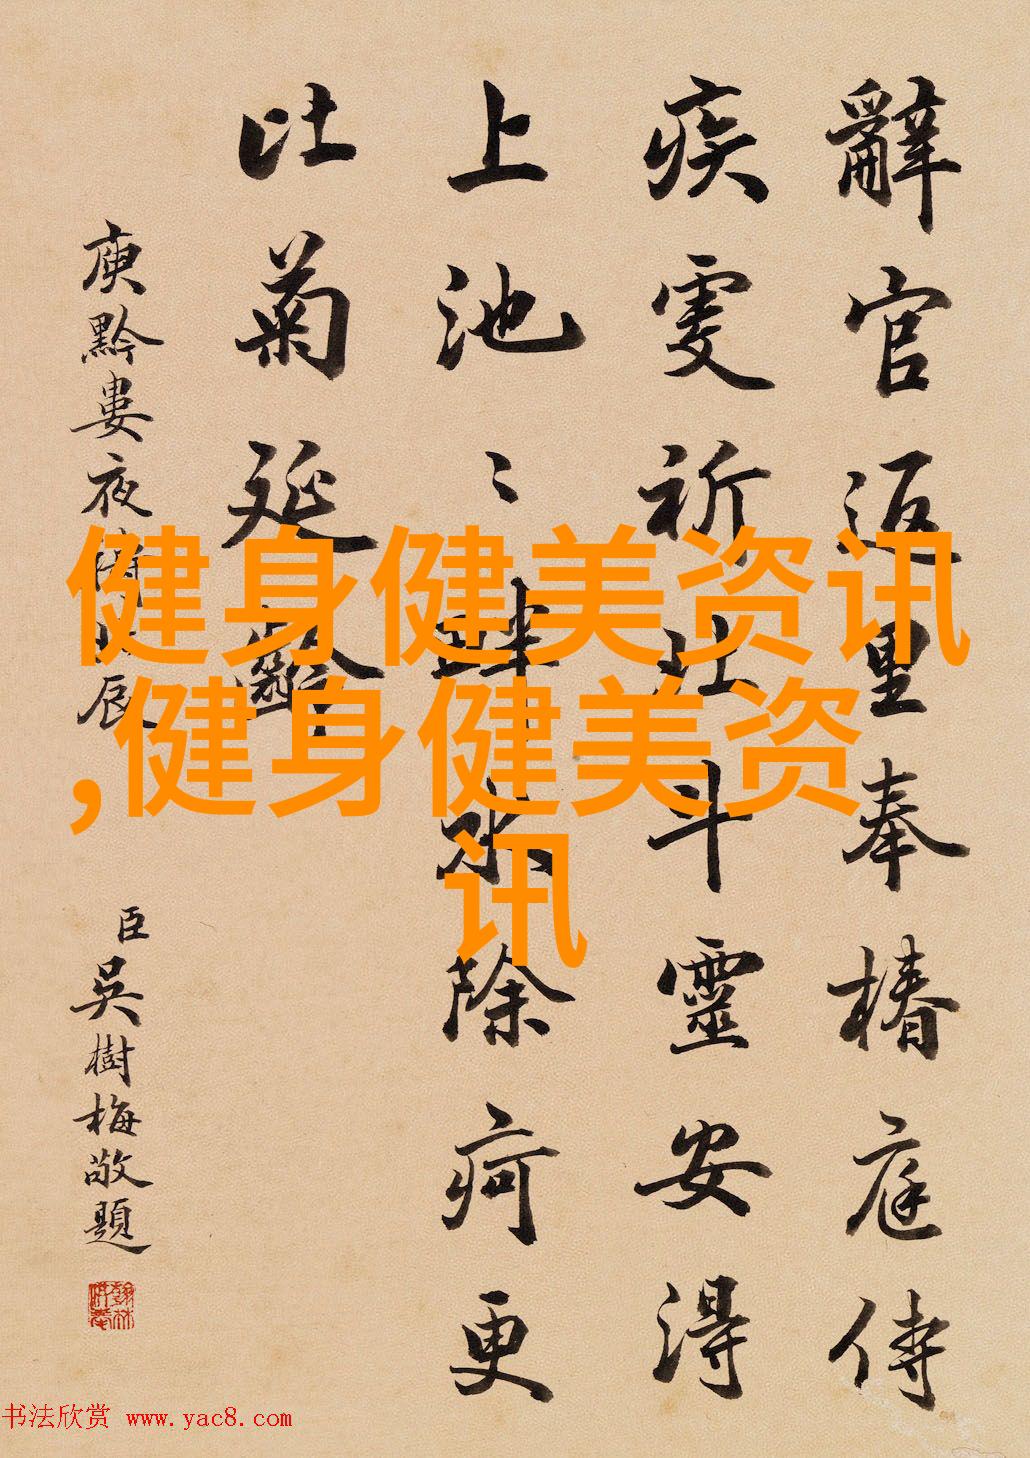 辭官返里奉椿庭侍
疾虔祈北斗靈安得
上池〻畔水除疴更
比菊延齡
庾黔婁夜禱北辰
臣吳樹梅敬題
健身健美资讯
,健身健美资
讯
书法欣赏 www.yac8.com